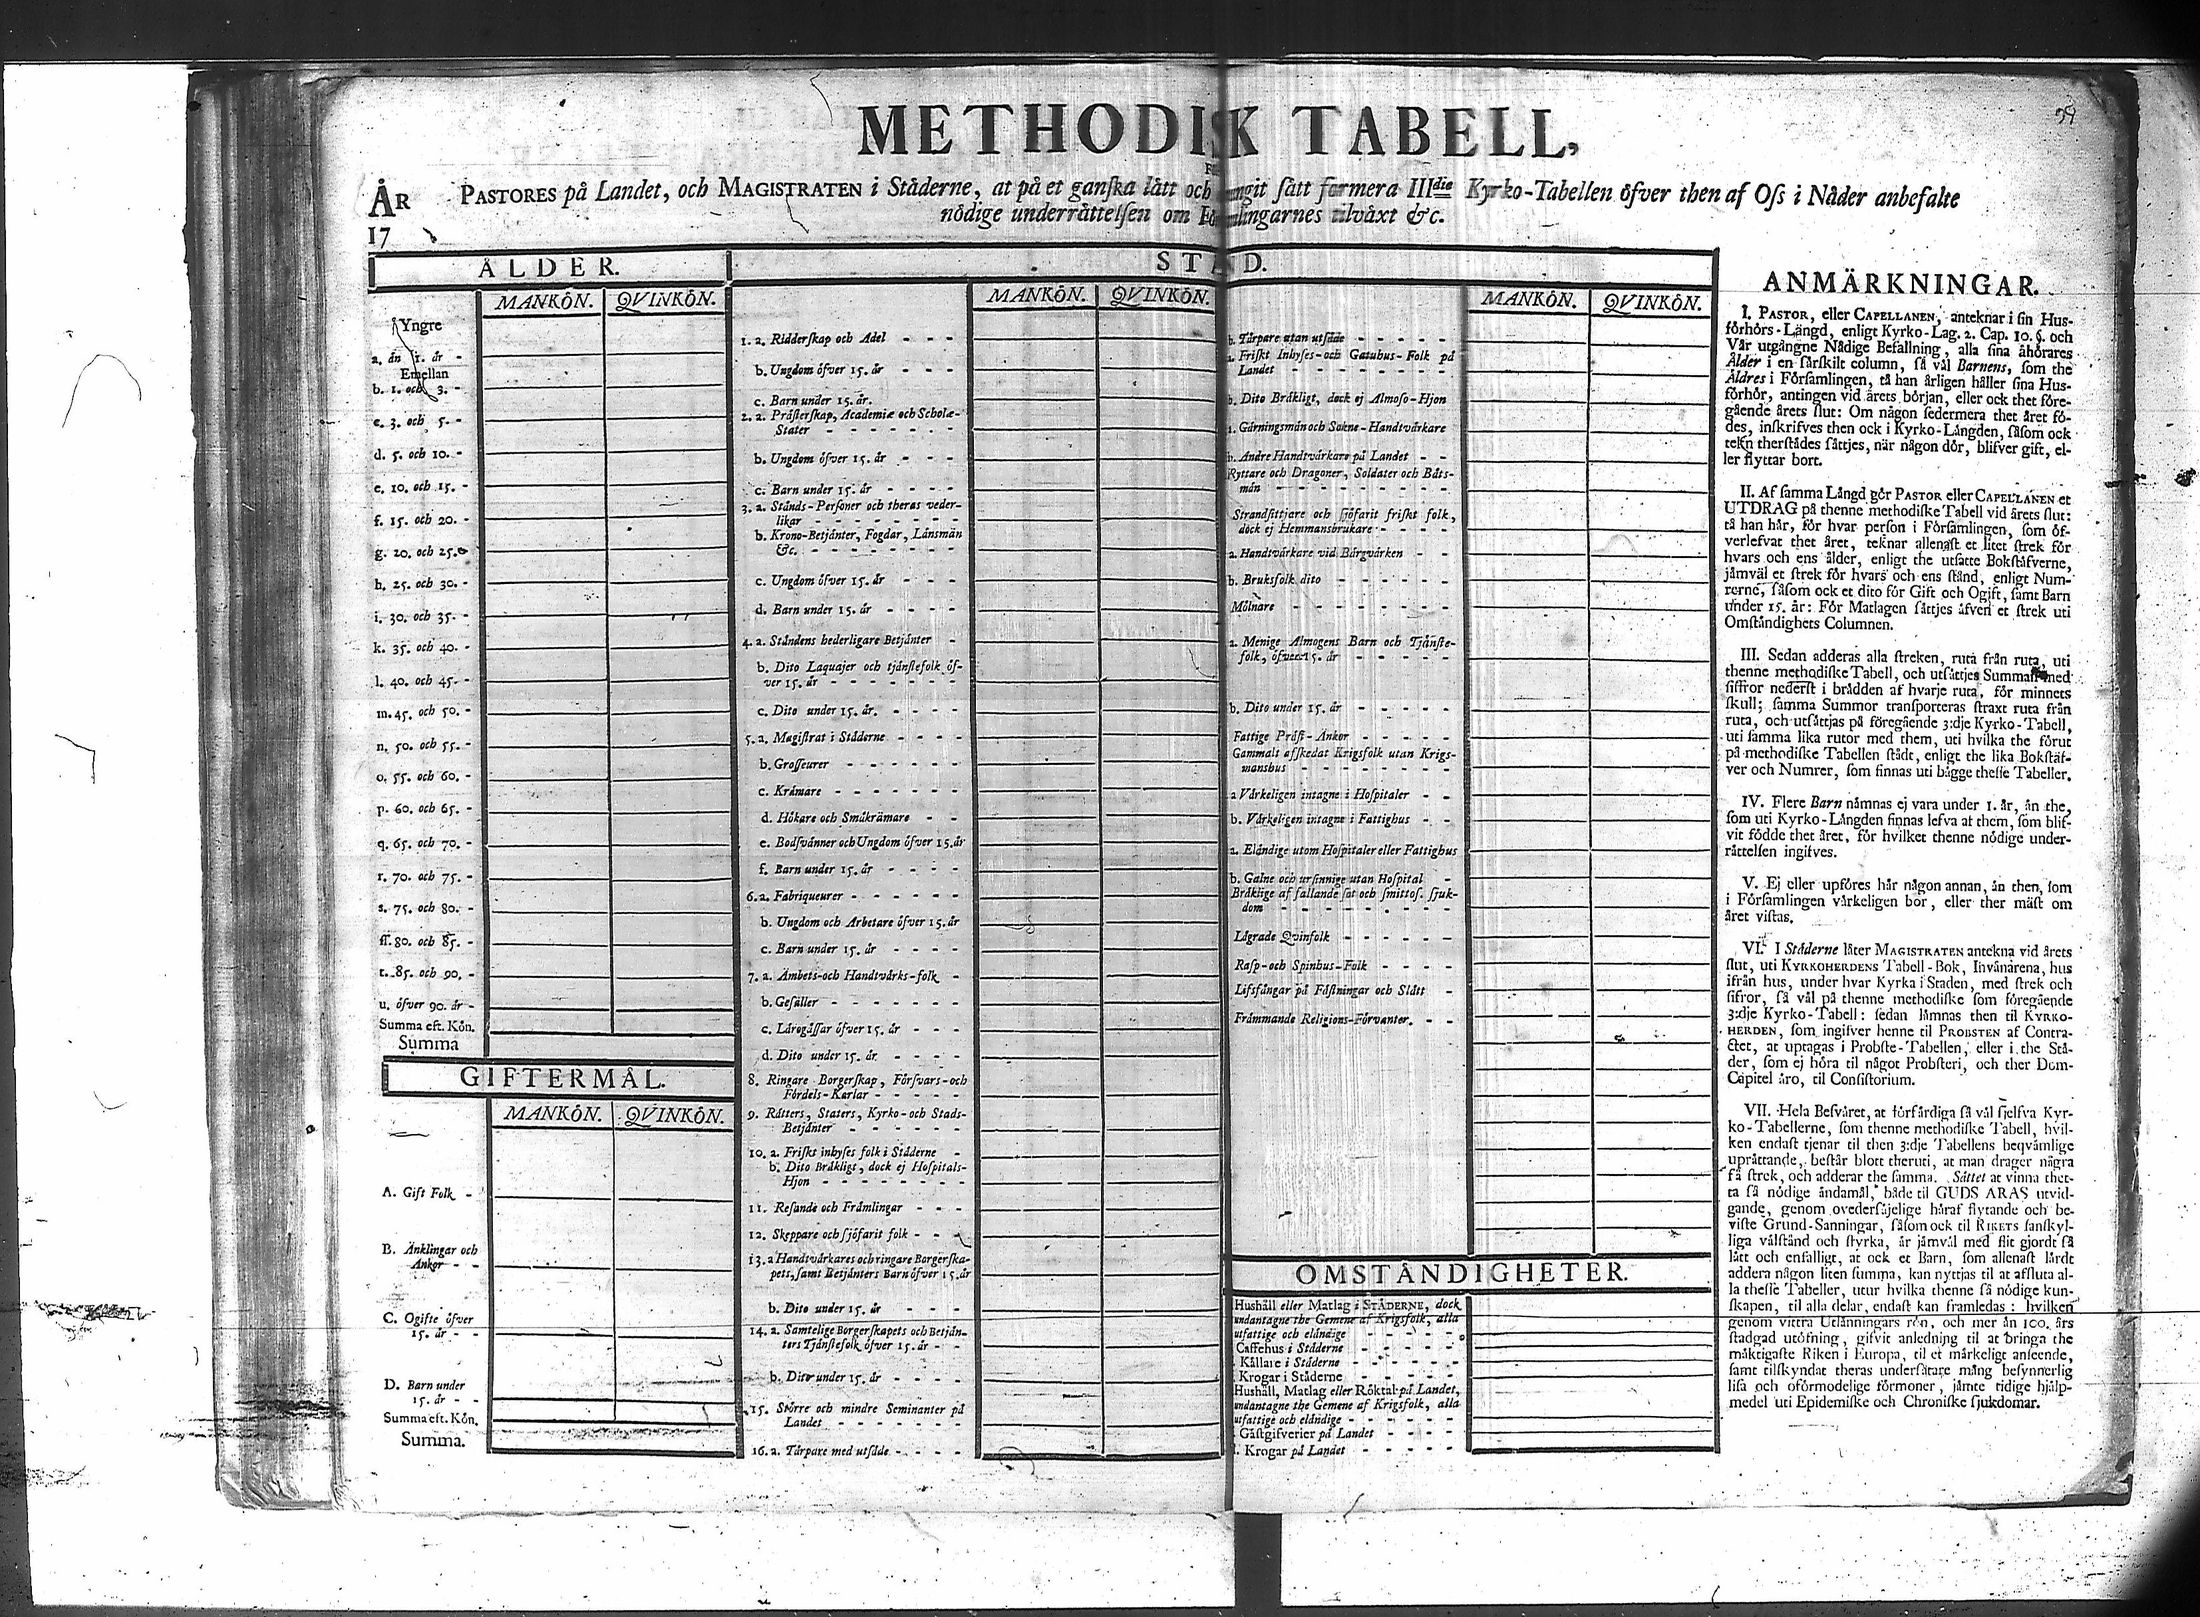 59
METHODISK TABELL,
ÅR
17
PASTORES på Landet, och MAGISTRATEN i Städerne, at på et ganſka lått och ſått formera IIIdie Kyrko-Tabellen öfver then af Oſs i Nåder anbefalte
nödige underråttelſen om tilvåxt &c.
ÅLDER.
MANKÖN. QVINKÖN.
Yngre
a. än 1. år -
Emellan
b. 1. och 3. -
c. 3. och 5. -
d. 5. och 10. -
e. 10. och 15. -
f. 15. och 20. -
g. 20. och 25.
h. 25. och 30. -
i. 30. och 35. -
k. 35. och 40. -
l. 40. och 45. -
m. 45. och 50. -
n. 50. och 55. -
o. 55. och 60. -
p. 60. och 65. -
q. 65. och 70. -
r. 70. och 75. -
s. 75. och 80. -
ſſ. 80. och 85. -
t. 85. och 90. -
u. öfver 90. år -
Summa eft. Kön.
Summa
GIFTERMÅL.
MANKÖN. QVINKÖN.
A. Gift Folk -
B. Änklingar och
Ånkor - -
C. Ogifte öfver
15. år - -
D. Barn under
15. år - -
Summa eft. Kön.
Summa.
STÅD.
MANKÖN. QVINKÖN.
1. a. Ridderſkap och Adel - - -
b. Ungdom öfver 15. år - - -
c. Barn under 15. år.
2. a. Pråſterſkap, Academiæ och Scholæ-
Stater - - - - - -
b. Ungdom öfver 15. år - - -
c. Barn under 15. år - - - -
3. a. Stånds-Perſoner och theras veder-
likar - - - - - - -
b. Krono-Betjånter, Fogdar, Lånsmån
&c. - - - - - - -
c. Ungdom öfver 15. år - - -
d. Barn under 15. år - - - -
4. a. Ståndens hederligare Betjånter -
b. Dito Laquajer och tjånſtefolk öf-
ver 15. år - - - - - - -
c. Dito under 15. år. - - - -
5. a. Magiſtrat i Städerne - - - -
b. Groſſeurer - - - - - -
c. Kråmare - - - - - -
d. Hökare och Småkråmare - -
e. Bodſvånner och Ungdom öfver 15. år
f. Barn under 15. år - - - -
6. a. Fabriqueurer - - - - - -
b. Ungdom och Arbetare öfver 15. år
c. Barn under 15. år - - - -
7. a. Åmbets-och Handtvårks-folk -
b. Geſåller - - - - - - -
c. Lårogåſſar öfver 15. år - - -
d. Dito under 15. år - - - -
8. Ringare Borgerſkap, Förſvars-och
Fördels-Karlar - - - - -
9. Råtters, Staters, Kyrko-och Stads-
Betjånter - - - - - -
10. a. Friſkt inhyſes folk i Städerne -
b. Dito Bråkligt, dock ej Hoſpitals-
Hjon - - - - - - - -
11. Reſande och Fråmlingar - - -
12. Skeppare och ſjöfarit folk - - -
13. a Handtvårkares och ringare Borgerſka-
pets, ſamt Betjånters Barn öfver 15. år
b. Dito under 15. år - - - -
14. a. Samtelige Borgerſkapets och Betjån-
ters Tjånſtefolk öfver 15. år - -
b. Dito under 15. år - - - -
15. Större och mindre Seminanter på
Landet - - - - - - -
16. a. Tårpare med utſåde - - - -
MANKÖN. QVINKÖN.
b. Tårpare utan utſåde - - - - -
a. Friſkt Inhyſes-och Gatuhus-Folk på
Landet - - - - - - - -
b. Dito Bråkligt, dock ej Almoſo-Hjon
Gårningsmån och Sokne-Handtvårkare
b. Andre Handtvårkare på Landet - -
Ryttare och Dragoner, Soldater och Båts-
mån - - - - - - - -
Strandſittjare och ſjöfarit friſkt folk,
dock ej Hemmansbrukare - - - -
a. Handtvårkare vid Bårgvårken - -
b. Bruksfolk dito - - - - - -
Mölnare - - - - - - - -
a. Menige Almogens Barn och Tjånſte-
folk, öfver 15. år - - - - -
b. Dito under 15. år - - - - -
Fattige Pråſt-Ånkor - - - - -
Gammalt afſkedat Krigsfolk utan Krigs-
manshus - - - - - - -
a Vårkeligen intagne i Hoſpitaler - -
b. Vårkeligen intagne i Fattighus - -
a. Elåndige utom Hoſpitaler eller Fattighus
b. Galne och urſinnige utan Hoſpital -
Bråklige af fallande ſot och ſmittoſ. ſjuk-
dom - - - - - - - -
Lågrade Qvinfolk - - - - - -
Raſp-och Spinhus-Folk - - - -
Lifsfångar på Fåſtningar och Slått -
Fråmmande Religions-Förvanter. - -
OMSTÅNDIGHETER.
Hushåll eller Matlag i STÅDERNE, dock
undantagne the Gemene af Krigsfolk, alla
utfattige och elåndige - - - - -
Caffehus i Städerne - - - - -
Kållare i Städerne - - - - -
Krogar i Städerne - - - - -
Hushåll, Matlag eller Röktal på Landet,
undantagne the Gemene af Krigsfolk, alla
utfattige och elåndige - - - - -
Gåſtgifverier på Landet - - - -
Krogar på Landet - - - - -
ANMÄRKNINGAR.
I. PASTOR, eller CAPELLANEN, anteknar i ſin Hus-
förhörs-Långd, enligt Kyrko-Lag. 2. Cap. 10. §. och
Vår utgångne Nådige Befallning, alla ſina åhörares
Ålder i en ſårſkilt column, ſå vål Barnens, ſom the
Åldres i Förſamlingen, tå han årligen håller ſina Hus-
förhör, antingen vid årets början, eller ock thet före-
gående årets ſlut: Om någon ſedermera thet året fö-
des, inſkrifves then ock i Kyrko-Långden, ſåſom ock
tekn therſtådes ſåttjes, når någon dör, blifver gift, el-
ler flyttar bort.
II. Af ſamma Långd gör PASTOR eller CAPELLANEN et
UTDRAG på thenne methodiſke Tabell vid årets ſlut:
tå han hår, för hvar perſon i Förſamlingen, ſom öf-
verlefvat thet året, teknar allenaſt et litet ſtrek för
hvars och ens ålder, enligt the utſatte Bokſtåfverne,
jåmvål et ſtrek för hvars och ens ſtånd, enligt Num-
rerne, ſåſom ock et dito för Gift och Ogift, ſamt Barn
under 15. år: För Matlagen ſåttjes åfven et ſtrek uti
Omſtåndighets Columnen.
III. Sedan adderas alla ſtreken, ruta från ruta, uti
thenne methodiſke Tabell, och utſåttjes Summan med
ſiffror nederſt i brådden af hvarje ruta, för minnets
ſkull; ſamma Summor tranſporteras ſtraxt ruta från
ruta, och utſåttjas på föregående 3:dje Kyrko-Tabell,
uti ſamma lika rutor med them, uti hvilka the förut
på methodiſke Tabellen ſtådt, enligt the lika Bokſtåf-
ver och Numrer, ſom finnas uti bågge theſſe Tabeller.
IV. Flere Barn nåmnas ej vara under 1. år, ån the,
ſom uti Kyrko-Långden finnas lefva at them, ſom blif-
vit födde thet året, för hvilket thenne nödige under-
råttelſen ingifves.
V. Ej eller upföres hår någon annan, ån then, ſom
i Förſamlingen vårkeligen bor, eller ther måſt om
året viſtas.
VI. I Städerne låter MAGISTRATEN antekna vid årets
ſlut, uti KYRKOHERDENS Tabell-Bok, Invånarena, hus
ifrån hus, under hvar Kyrka i Staden, med ſtrek och
ſifror, ſå vål på thenne methodiſke ſom föregående
3:dje Kyrko-Tabell: ſedan låmnas then til KYRKO-
HERDEN, ſom ingifver henne til PROBSTEN af Contra-
ctet, at uptagas i Probſte-Tabellen, eller i the Stå-
der, ſom ej höra til något Probſteri, och ther Dom-
Capitel åro, til Conſiſtorium.
VII. Hela Beſvåret, at förfårdiga ſå vål ſjelfva Kyr-
ko-Tabellerne, ſom thenne methodiſke Tabell, hvil-
ken endaſt tjenar til then 3:dje Tabellens beqvåmlige
upråttande, beſtår blott theruti, at man drager några
få ſtrek, och adderar the ſamma. Såttet at vinna thet-
ta ſå nödige åndamål, både til GUDS ÅRAS utvid-
gande, genom ovederſåjelige håraf flytande och be-
viſte Grund-Sanningar, ſåſom ock til RIKETS ſanſkyl-
liga vålſtånd och ſtyrka, år jåmvål med flit gjordt ſå
lått och enfalligt, at ock et Barn, ſom allenaſt lårdt
addera någon liten ſumma, kan nyttjas til at affluta al-
la theſſe Tabeller, utur hvilka thenne ſå nödige kun-
ſkapen, til alla delar, endaſt kan framledas: hvilken
genom vittra Utlånningars rön, och mer ån 100. års
ſtadgad utöfning, gifvit anledning til at bringa the
måktigaſte Riken i Europa, til et mårkeligt anſeende,
ſamt tilſkyndat theras underſåtare mång beſynnerlig
liſa och oförmodelige förmoner, jåmte tidige hjålp-
medel uti Epidemiſke och Chroniſke ſjukdomar.